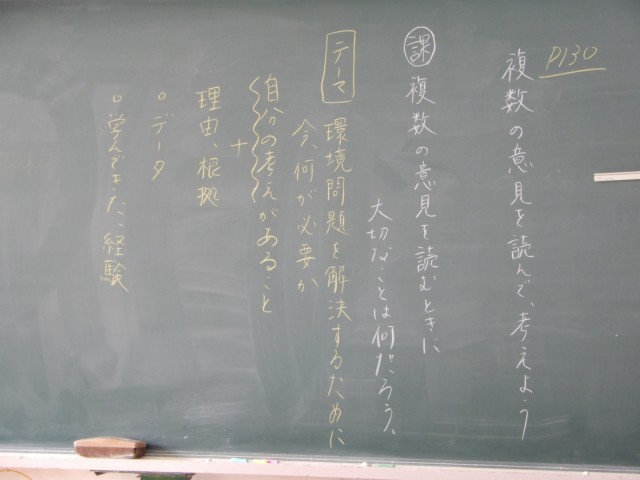 P130
複数の意見を読んで、考えよう
課 複数の意見を読むときに
大切なことは何だろう。
テーマ 環境問題を解決するために
今、何が必要か
自分の考えがあること
+
理由、根拠
○データ
○学んできた、経験